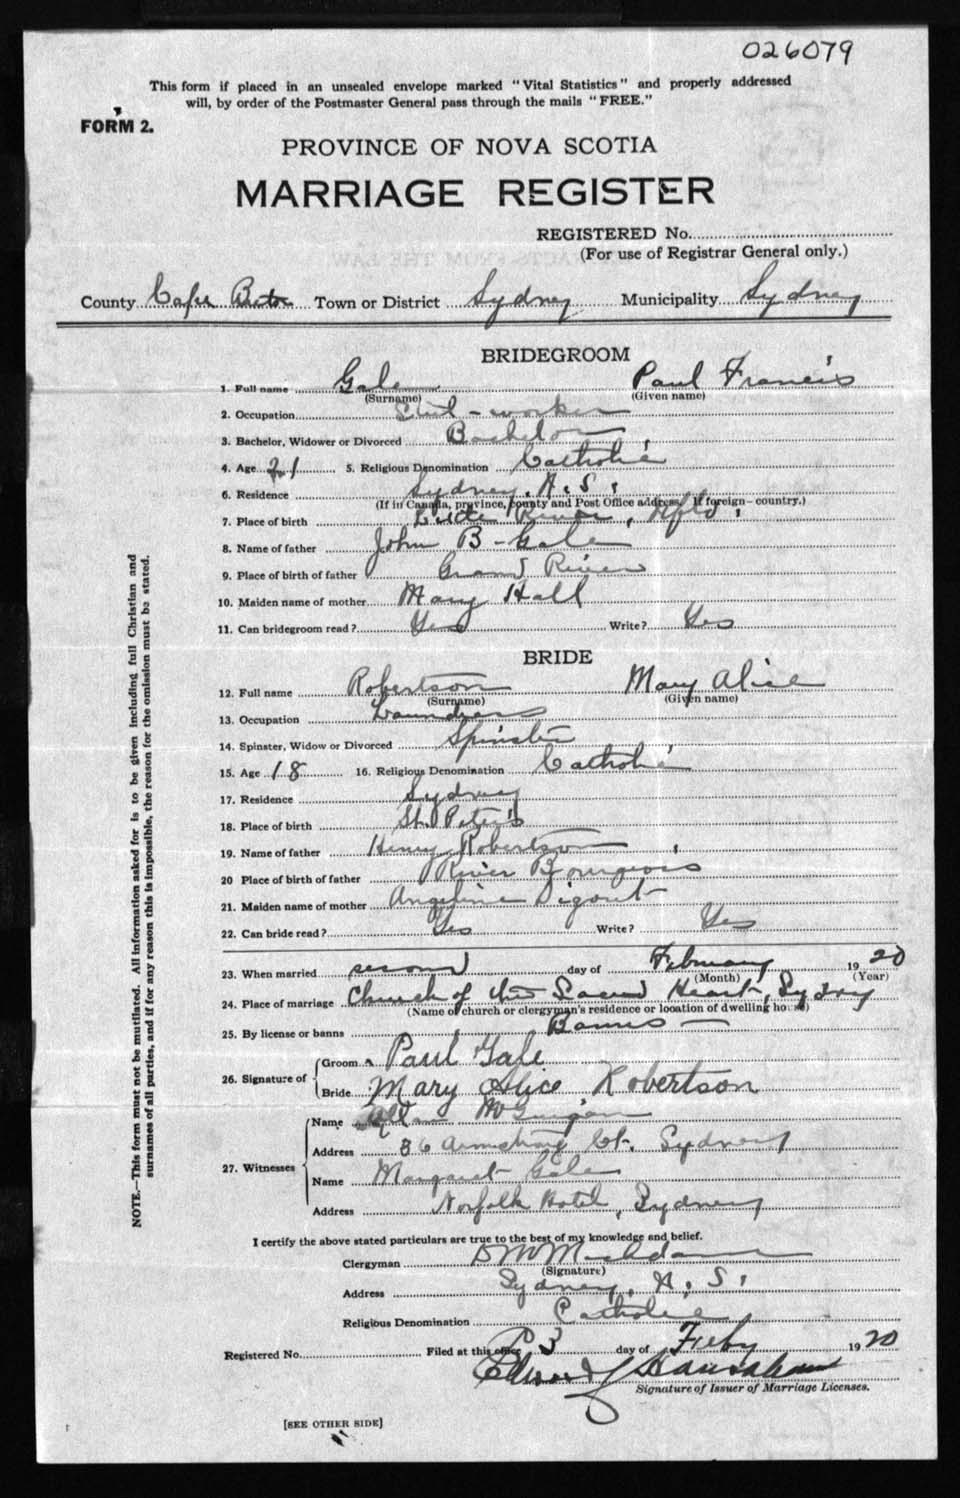 026079
This form if placed in an unsealed envelope marked "Vital Statistics" and properly addressed
will, by order of the Postmaster General pass through the mails "FREE."
FORM 2.
PROVINCE OF NOVA SCOTIA
MARRIAGE REGISTER
REGISTERED No.
(For use of Registrar General only.)
County Cape Breton Town or District Sydney Municipality Sydney
BRIDEGROOM
1. Full name Gale Paul Francis
(Surname) (Given name)
2. Occupation Steel-worker
3. Bachelor, Widower or Divorced Bachelor
4. Age 21 5. Religious Denomination Catholic
6. Residence Sydney, N.S.
(If in Canada, province, county and Post Office address. If foreign—country.)
7. Place of birth River, Nfld.
8. Name of father John B-Gale
9. Place of birth of father Grand River
10. Maiden name of mother Mary Hall
11. Can bridegroom read? Yes Write? Yes
BRIDE
12. Full name Robertson Mary Alice
(Surname) (Given name)
13. Occupation Laundress
14. Spinster, Widow or Divorced Spinster
15. Age 18 16. Religious Denomination Catholic
17. Residence Sydney
18. Place of birth St. Peter's
19. Name of father Henry Robertson
20 Place of birth of father River Bourgeois
21. Maiden name of mother Angeline Digout
22. Can bride read? Yes Write? Yes
23. When married second day of February 1920
(Month) (Year)
24. Place of marriage Church of the Sacred Heart, Sydney
(Name of church or clergyman's residence or location of dwelling house)
25. By license or banns Banns
26. Signature of Groom Paul Gale
Bride Mary Alice Robertson
27. Witnesses
Name
Address 36 Armstrong Ct. Sydney
Name Margaret Gale
Address Norfolk Hotel, Sydney
I certify the above stated particulars are true to the best of my knowledge and belief.
Clergyman
(Signature)
Address Sydney, N.S.
Religious Denomination Catholic
Registered No. Filed at this office 3 day of Feby 1920
Signature of Issuer of Marriage Licenses.
[SEE OTHER SIDE]
NOTE.—This form must not be mutilated. All information asked for is to be given including full Christian and
surnames of all parties, and if for any reason this is impossible, the reason for the omission must be stated.